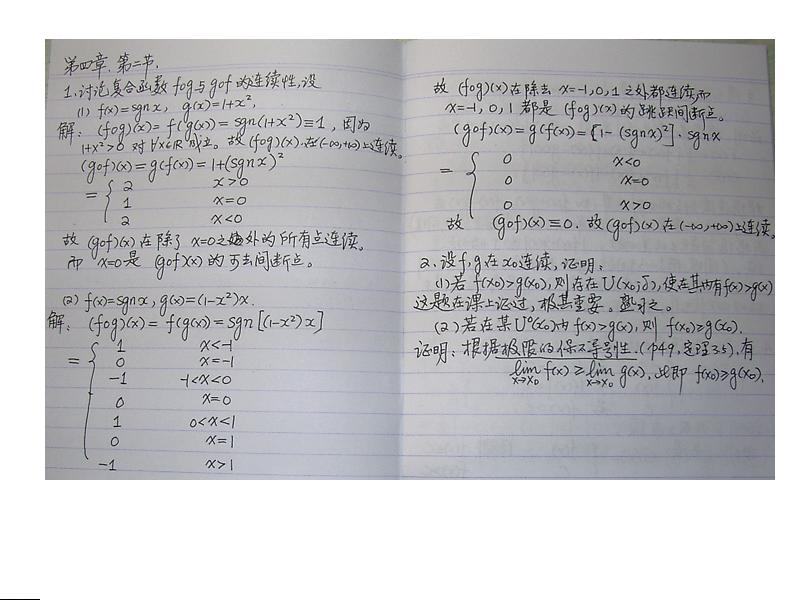 第四章.第二节.
1.讨论复合函数 f∘g与g∘f 的连续性,设
(1) f(x)=sgnx, g(x)=1+x²,
解: (f∘g)(x)=f(g(x))=sgn(1+x²)≡1, 因为
1+x²>0 对∀x∈R成立。故(f∘g)(x)在(-∞,+∞)上连续。
(g∘f)(x)=g(f(x))=1+(sgnx)²
= { 2 x>0
1 x=0
2 x<0
故 (g∘f)(x)在除了 x=0之外的所有点连续。
而 x=0是 (g∘f)(x) 的可去间断点。
(2) f(x)=sgnx, g(x)=(1-x²)x.
解: (f∘g)(x)=f(g(x))=sgn[(1-x²)x]
= { 1 x<-1
0 x=-1
-1 -1<x<0
0 x=0
1 0<x<1
0 x=1
-1 x>1
故 (f∘g)(x)在除去 x=-1,0,1之外都连续,而
x=-1,0,1都是 (f∘g)(x)的跳跃间断点。
(g∘f)(x)=g(f(x))=[1-(sgnx)²]·sgnx
= { 0 x<0
0 x=0
0 x>0
故 (g∘f)(x)≡0. 故(g∘f)(x)在(-∞,+∞)上连续。
2.设f,g在x₀连续,证明:
(1)若 f(x₀)>g(x₀),则存在U(x₀;δ),使在其内有f(x)>g(x)
这题在课上证过,极其重要。熟记之。
(2)若在某U°(x₀)内f(x)>g(x),则 f(x₀)≥g(x₀).
证明:根据极限的保不等号性.(p49,定理3.5).有
lim f(x)≥lim g(x).此即 f(x₀)≥g(x₀).
x→x₀ x→x₀